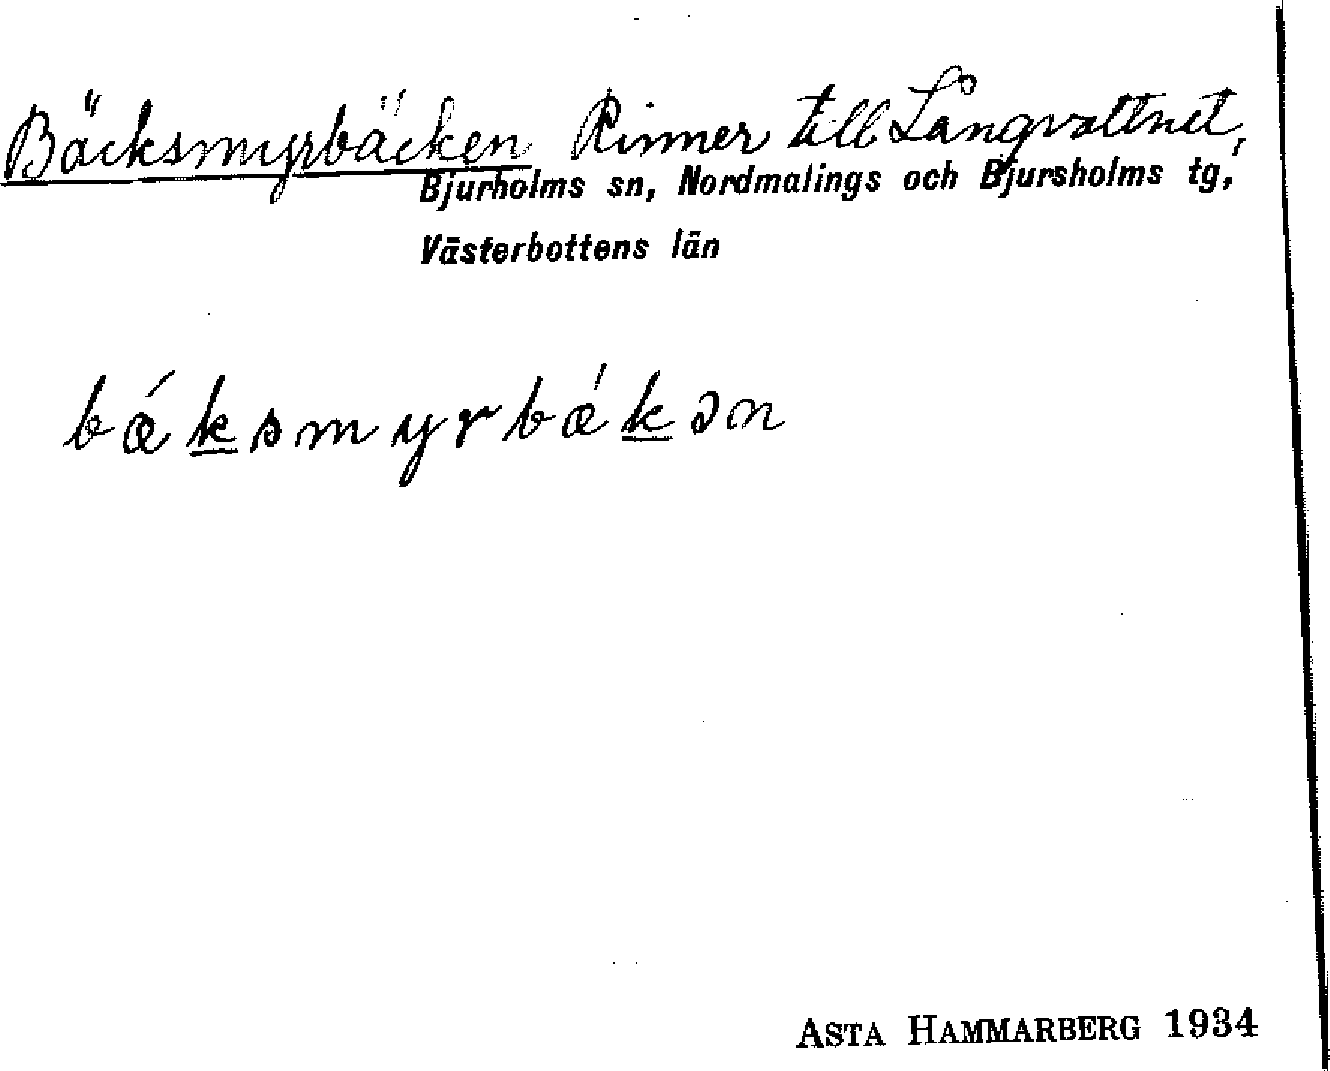 Bäcksmyrbäcken Rinner till Långvattnet,
Bjurholms sn, Nordmalings och Bjursholms tg,
Västerbottens län
bǽksmyrbǽkən
ASTA HAMMARBERG 1934